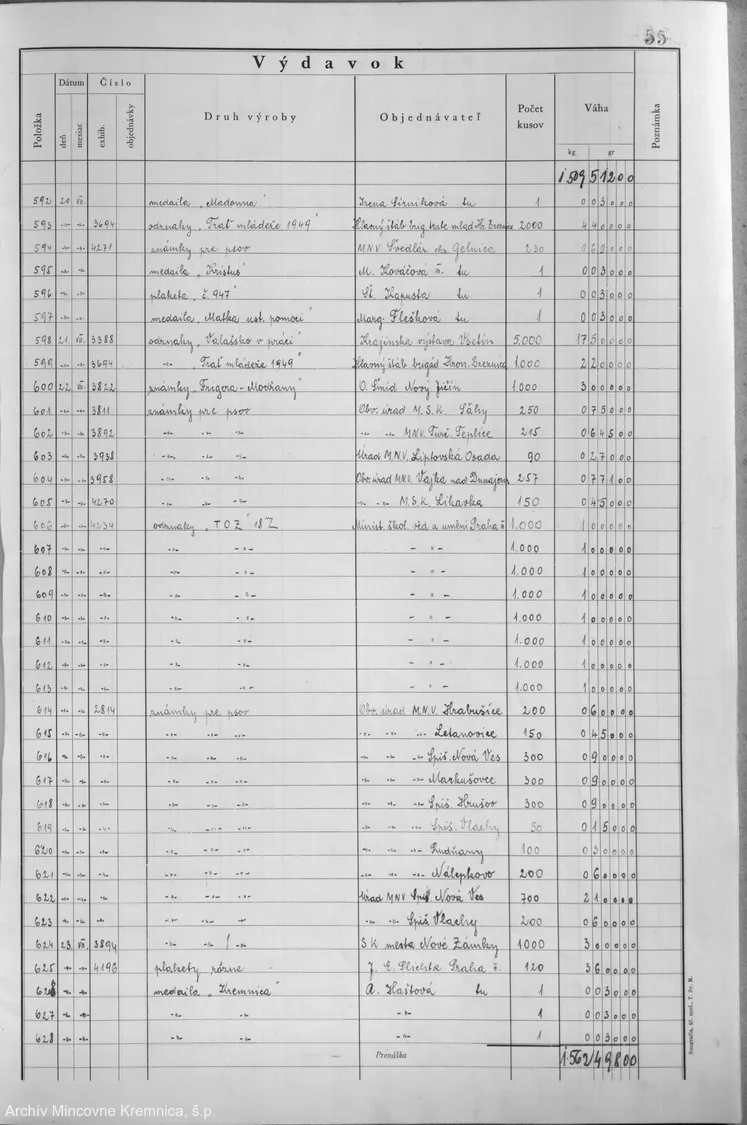 55
Výdavok
Položka Dátum Číslo Druh výroby Objednávateľ Počet kusov Váha Poznámka
deň mesiac exhib. objednávky kg gr
1509 5 1 2 0 0
592 20 VII. medaila „Madonna" Irena Sirníková tu 1 0 0 3 0 0 0
593 -"- -"- 3694 odznaky „Trať mládeže 1949" 2000 4 4 0 0 0 0
594 -"- -"- 4271 známky pre psov MNV Švedlár okr. Gelnica 230 0 6 9 0 0 0
595 -"- -"- medaila „Kristus" M. Kováčová tu 1 0 0 3 0 0 0
596 -"- -"- plaketa „č. 947" Št. Kapusta tu 1 0 0 3 0 0 0
597 -"- -"- medaila „Matka ust. pomoci" Marg. Flešková tu 1 0 0 3 0 0 0
598 21. VII. 3388 odznaky „Valašsko v práci" Krajinska výstava Vsetín 5.000 17 5 0 0 0
599 -"- -"- 3694 -"- „Trať mládeže 1949" Hlavný štáb brigád 1.000 2 2 0 0 0 0
600 22. VII. 3822 známky „Frigora-Modřany" O. Šmíd Nový Jičín 1.000 3 0 0 0 0
601 -"- -"- 3811 známky pre psov Obv. úrad M.S.K. Šahy 250 0 7 5 0 0 0
602 -"- -"- 3892 -"- -"- -"- -"- -"- MNV. Turč. Teplice 215 0 6 4 5 0 0
603 -"- -"- 3938 -"- -"- -"- Úrad M.N.V. Liptovská Osada 90 0 2 7 0 0 0
604 -"- -"- 3958 -"- -"- -"- Obv. úrad MNV. Vajka nad Dunajom 257 0 7 7 1 0 0
605 -"- -"- 4270 -"- -"- -"- -"- -"- M.S.K. Likavka 150 0 4 5 0 0 0
606 -"- -"- 4234 odznaky „TOZ" 18Z Minist. škol. věd a umění Praha 1.000 1 0 0 0 0 0
607 -"- -"- -"- -"- -"- -"- 1.000 1 0 0 0 0 0
608 -"- -"- -"- -"- -"- -"- 1.000 1 0 0 0 0 0
609 -"- -"- -"- -"- -"- -"- 1.000 1 0 0 0 0 0
610 -"- -"- -"- -"- -"- -"- 1.000 1 0 0 0 0 0
611 -"- -"- -"- -"- -"- -"- 1.000 1 0 0 0 0 0
612 -"- -"- -"- -"- -"- -"- 1.000 1 0 0 0 0 0
613 -"- -"- -"- -"- -"- -"- 1.000 1 0 0 0 0 0
614 -"- -"- 2814 známky pre psov Obv. úrad M.N.V. Hrabušice 200 0 6 0 0 0 0
615 -"- -"- -"- -"- -"- -"- -"- -"- -"- Letanovice 150 0 4 5 0 0 0
616 -"- -"- -"- -"- -"- -"- -"- -"- -"- Spiš. Nová Ves 300 0 9 0 0 0 0
617 -"- -"- -"- -"- -"- -"- -"- -"- -"- Markušovce 300 0 9 0 0 0 0
618 -"- -"- -"- -"- -"- -"- -"- -"- -"- Spiš. Hrušov 300 0 9 0 0 0 0
619 -"- -"- -"- -"- -"- -"- -"- -"- -"- Spiš. Vlachy 50 0 1 5 0 0 0
620 -"- -"- -"- -"- -"- -"- -"- -"- -"- Rudňany 100 0 3 0 0 0 0
621 -"- -"- -"- -"- -"- -"- -"- -"- -"- Nálepkovo 200 0 6 0 0 0 0
622 -"- -"- -"- -"- -"- -"- Úrad MNV Spiš. Nová Ves 700 2 1 0 0 0 0
623 -"- -"- -"- -"- -"- -"- -"- -"- Spiš Vlachy 200 0 6 0 0 0 0
624 23. VII. 3894 -"- -"- -"- SK mesta Nové Zámky 1000 3 0 0 0 0 0
625 -"- -"- 4196 plakety rôzne J. E. Plichta Praha 120 3 6 0 0 0 0
626 -"- -"- medaila „Kremnica" A. Haštová tu 1 0 0 3 0 0 0
627 -"- -"- -"- -"- -"- 1 0 0 3 0 0 0
628 -"- -"- -"- -"- -"- 1 0 0 3 0 0 0
Prenáška 1.562 4 9 8 0 0
Archív Mincovne Kremnica, š.p.